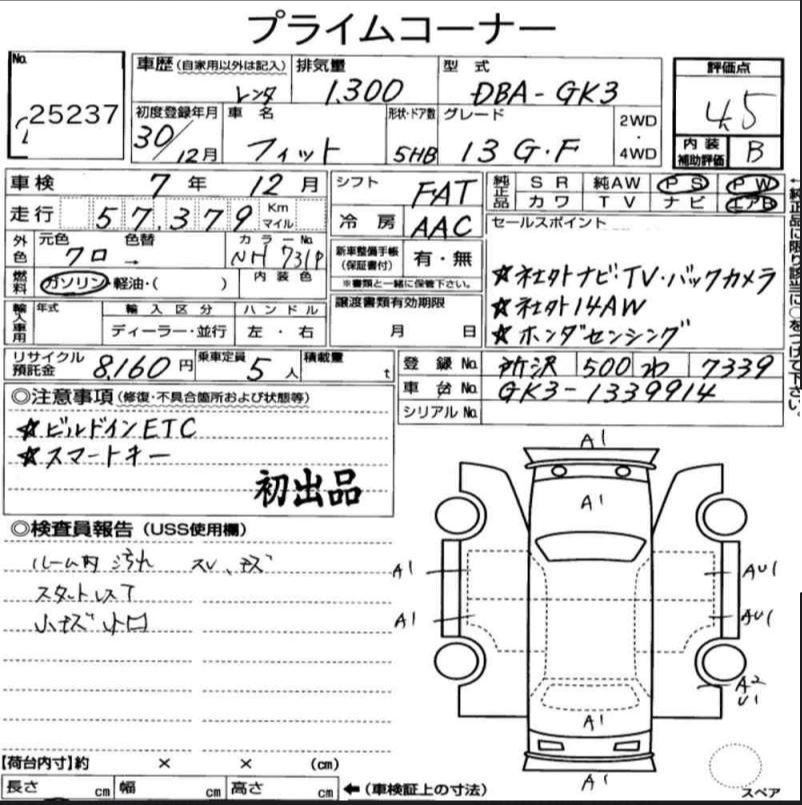 プライムコーナー
No. 25237
車歴 (自家用以外は記入) レンタ
排気量 1,300
型式 DBA-GK3
評価点 4.5
初度登録年月 30/12月
車名 フィット
形状・ドア数 5HB
グレード 13 G・F
2WD ・ 4WD
内装補助評価 B
車検 7年 12月
シフト FAT
純正品 SR 純AW PS PW
カワ TV ナビ エアB
走行 57,379 Km マイル
冷房 AAC
セールスポイント
外色 元色 クロ → 色替 カラーNo. NH731P
新車整備手帳 (保証書付) 有・無
※書類と一緒に保管下さい。
☆社外ナビTV・バックカメラ
燃料 ガソリン・軽油・( ) 内装色
☆社外14AW
輸入車用 年式 輸入区分 ハンドル
譲渡書類有効期限
☆ホンダセンシング
ディーラー・並行 左・右
月 日
リサイクル預託金 8,160円 乗車定員 5人 積載量 t
登録No. 所沢 500 わ 7339
車台No. GK3-1339914
シリアルNo.
←純正品に限り該当に○をつけて下さい。
◎注意事項(修復・不具合箇所および状態等)
☆ビルドインETC
☆スマートキー
初出品
◎検査員報告 (USS使用欄)
ルーム内 汚れ スレ、キズ
小キズ 小凹
A1
A1
A1 AU1
A1 AU1
A2
U1
A1
A1
【荷台内寸】約 × × (cm)
長さ cm 幅 cm 高さ cm ←(車検証上の寸法)
スペア